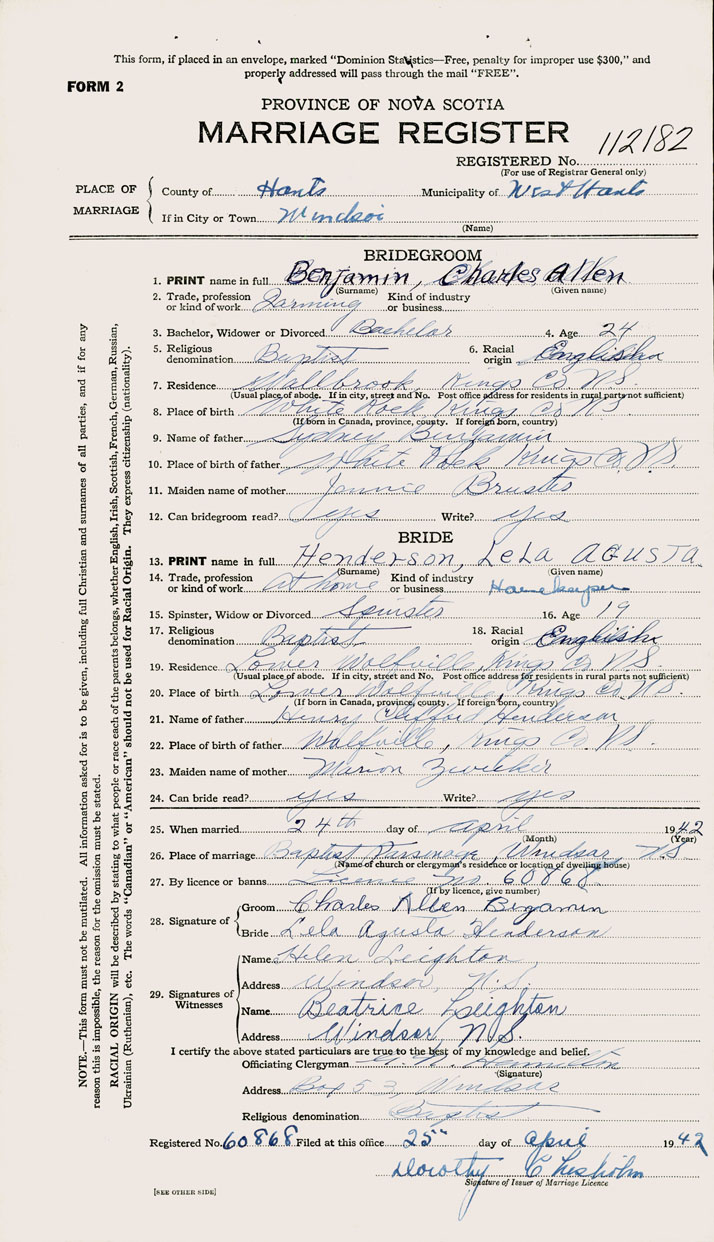 This form, if placed in an envelope, marked "Dominion Statistics—Free, penalty for improper use $300," and
properly addressed will pass through the mail "FREE".
FORM 2
PROVINCE OF NOVA SCOTIA
MARRIAGE REGISTER
112182
REGISTERED No.
(For use of Registrar General only)
PLACE OF MARRIAGE
County of Hants Municipality of West Hants
If in City or Town Windsor
(Name)
BRIDEGROOM
1. PRINT name in full Benjamin, Charles Allen
(Surname) (Given name)
2. Trade, profession or kind of work Farming Kind of industry or business
3. Bachelor, Widower or Divorced Bachelor 4. Age 24
5. Religious denomination Baptist 6. Racial origin English
7. Residence Millbrook, Kings Co. N.S.
(Usual place of abode. If in city, street and No. Post office address for residents in rural parts not sufficient)
8. Place of birth White Rock Kings Co N S
(If born in Canada, province, county. If foreign born, country)
9. Name of father Sydney Benjamin
10. Place of birth of father White Rock Kings Co. N.S.
11. Maiden name of mother Jennie
12. Can bridegroom read? yes Write? yes
BRIDE
13. PRINT name in full Henderson, LeLa AGUSTA
(Surname) (Given name)
14. Trade, profession or kind of work at home Kind of industry or business Housekeeper
15. Spinster, Widow or Divorced Spinster 16. Age 19
17. Religious denomination Baptist 18. Racial origin English
19. Residence Lower Wolfville, Kings Co N.S.
(Usual place of abode. If in city, street and No. Post office address for residents in rural parts not sufficient)
20. Place of birth Lower Wolfville, Kings Co. N.S.
(If born in Canada, province, county. If foreign born, country)
21. Name of father Henry Clifford Henderson
22. Place of birth of father Wolfville, Kings Co. N.S.
23. Maiden name of mother Marion Zwicker
24. Can bride read? yes Write? yes
25. When married 24th day of april 1942
(Month) (Year)
26. Place of marriage Baptist Parsonage, Windsor, N.S
(Name of church or clergyman's residence or location of dwelling house)
27. By licence or banns Licence No. 60868
(If by licence, give number)
28. Signature of
Groom Charles Allen Benjamin
Bride Lela Agusta Henderson
29. Signatures of Witnesses
Name Helen Leighton
Address Windsor, N.S.
Name Beatrice Leighton
Address Windsor, N.S.
I certify the above stated particulars are true to the best of my knowledge and belief.
Officiating Clergyman Hamilton
(Signature)
Address Box 53, Windsor
Religious denomination Baptist
Registered No. 60868 Filed at this office 25th day of april 1942
Dorothy Chisholm
Signature of Issuer of Marriage Licence
[SEE OTHER SIDE]
NOTE.—This form must not be mutilated. All information asked for is to be given, including full Christian and surnames of all parties, and if for any
reason this is impossible, the reason for the omission must be stated.
RACIAL ORIGIN will be described by stating to what people or race each of the parents belongs, whether English, Irish, Scottish, French, German, Russian,
Ukrainian (Ruthenian), etc. The words "Canadian" or "American" should not be used for Racial Origin. They express citizenship (nationality).